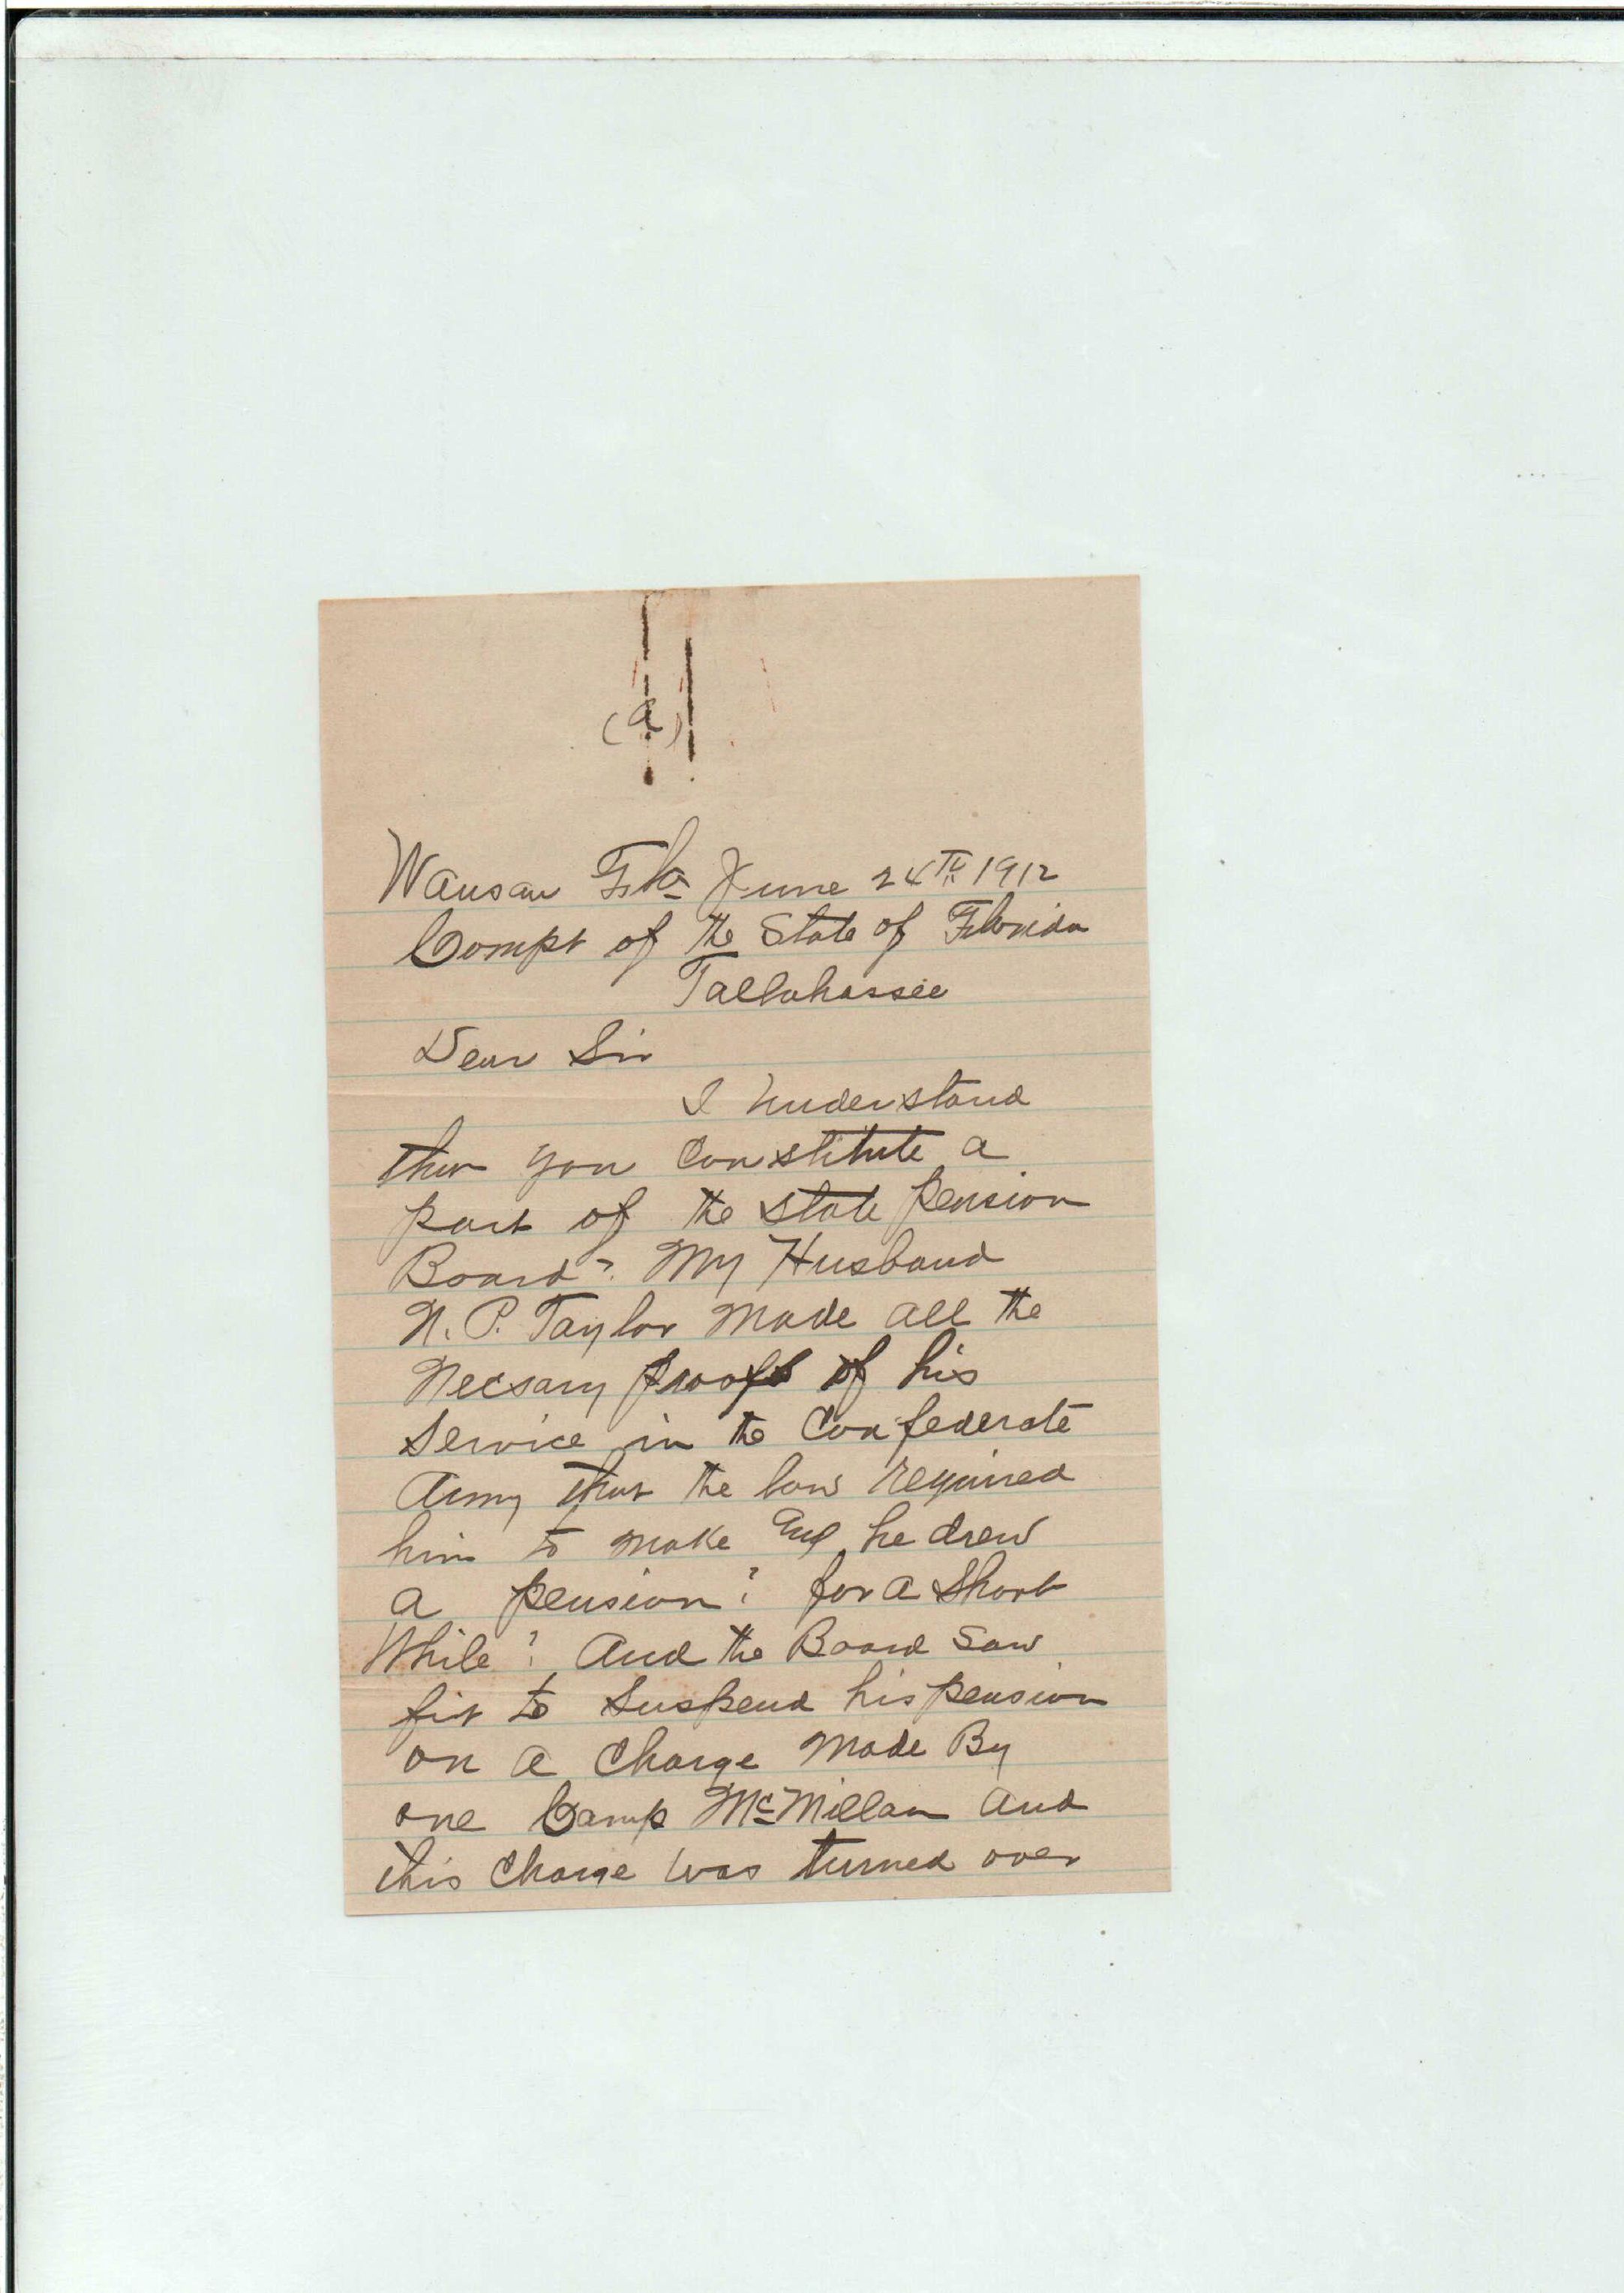 (a)
Wausau Fla June 24TH 1912
Compt of the State of Florida
Tallahassee
Dear Sir
I understand
that you Constitute a
part of the state pension
Board? My Husband
N. P. Taylor Made all the
Necsary proofs of his
Service in the Confederate
Army that the law required
him to make and he drew
a pension? for a Short
While? And the Board saw
fit to Suspend his pension
on a Charge Made By
one Camp McMillan and
this Charge was turned over